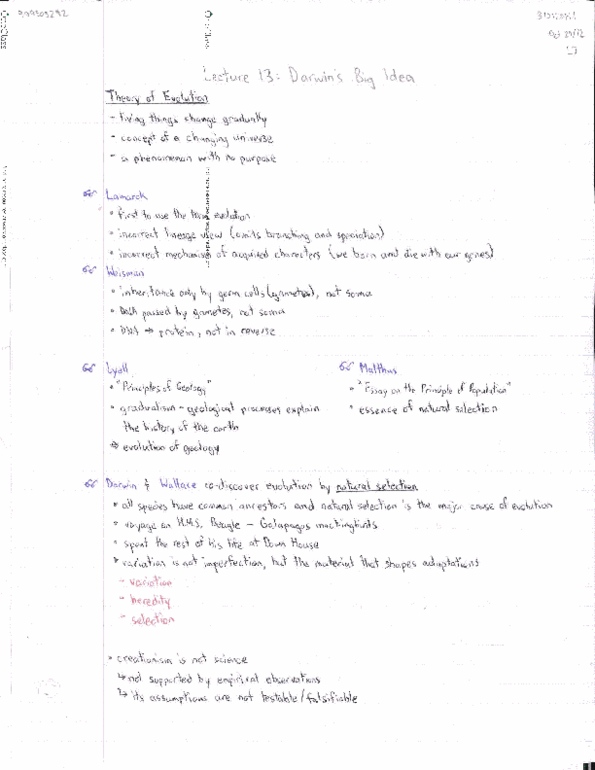 Lecture 13: Darwin's Big Idea
Theory of Evolution
- living things change gradually
- concept of a changing universe
- a phenomenon with no purpose
Lamarck
• first to use the term evolution
• incorrect lineage view (omits branching and speciation)
• incorrect mechanism of acquired characters (we born and die with our genes)
Weisman
• inheritance only by germ cells (gametes), not soma
• DNA passed by gametes, not soma
• DNA → protein, not in reverse
Lyell
• "Principles of Geology"
• gradualism - geological processes explain
the history of the earth
→ evolution of geology
Malthus
• "Essay on the Principle of Population"
• essence of natural selection
Darwin & Wallace co-discover evolution by natural selection
• all species have common ancestors and natural selection is the major cause of evolution
• voyage on H.M.S. Beagle - Galapagos mockingbirds
• spent the rest of his life at Down House
• variation is not imperfection, but the material that shapes adaptations
- variation
- heredity
- selection
• creationism is not science
↳ not supported by empirical observations
↳ its assumptions are not testable/falsifiable